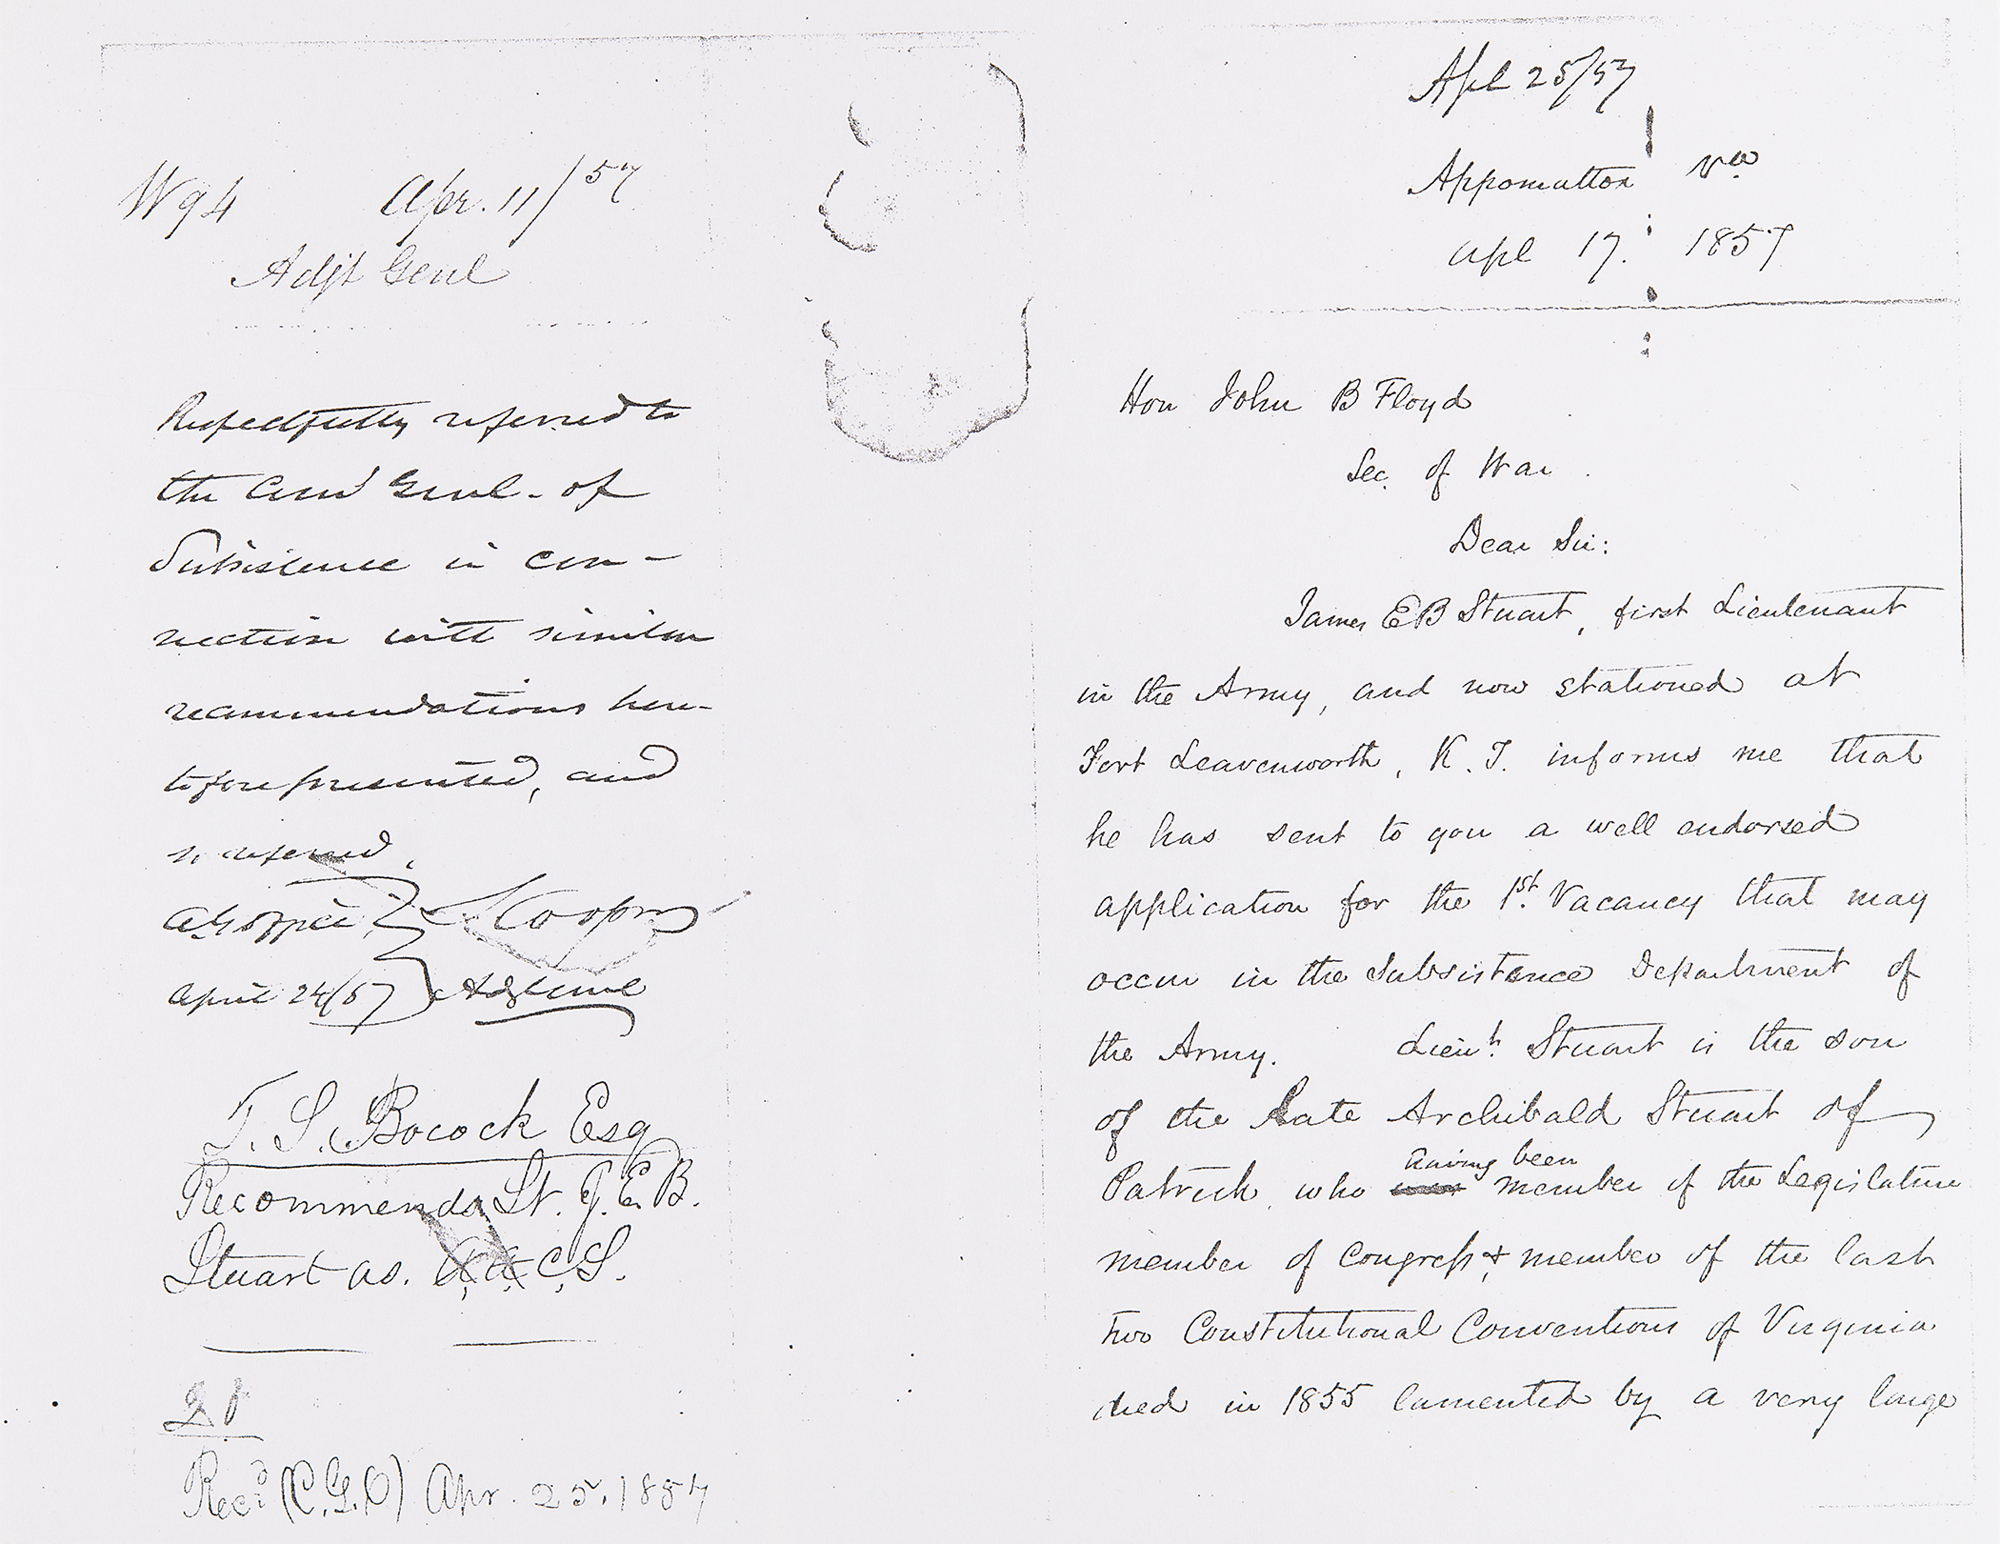 W 94 Apr. 11/57
Adjt Genl
Respectfully referred to
the Com' Genl - of
Subsistence in con-
nection with similar
recommendations here-
tofore presented, and
referred.
A.G. Office S Cooper
April 24/57 Adj Genl
T. S. Bocock Esq
Recommends Lt. J. E. B.
Stuart as. C, S.
Rec'd (C.G.O) Apr. 25. 1857
Apl 25/57
Appomattox Va
Apl 17. 1857
Hon John B Floyd
Sec. of War.
Dear Sir:
James E B Stuart, first Lieutenant
in the Army, and now stationed at
Fort Leavenworth, K. T. informs me that
he has sent to you a well endorsed
application for the 1st. Vacancy that may
occur in the Subsistence Department of
the Army. Lieut. Stuart is the son
of the Late Archibald Stuart of
having been
Patrick, who member of the Legislature
member of Congress & member of the last
two Constitutional Conventions of Virginia
died in 1855 lamented by a very large